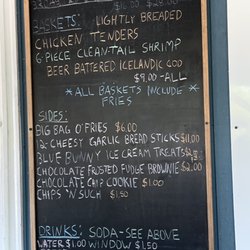 $16.00 $28.00
BASKETS: LIGHTLY BREADED
CHICKEN TENDERS
6-PIECE CLEAN-TAIL SHRIMP
BEER BATTERED ICELANDIC COD
$9.00-ALL
*ALL BASKETS INCLUDE *
FRIES
SIDES:
BIG BAG O'FRIES $6.00
12-CHEESY GARLIC BREAD STICKS $11.00
BLUE BUNNY ICE CREAM TREATS $2
CHOCOLATE FROSTED FUDGE BROWNIE $2.00
CHOCOLATE CHIP COOKIE $1.00
CHIPS 'N SUCH $1.50
DRINKS: SODA-SEE ABOVE
WATER $1.00 WINDOW $1.50